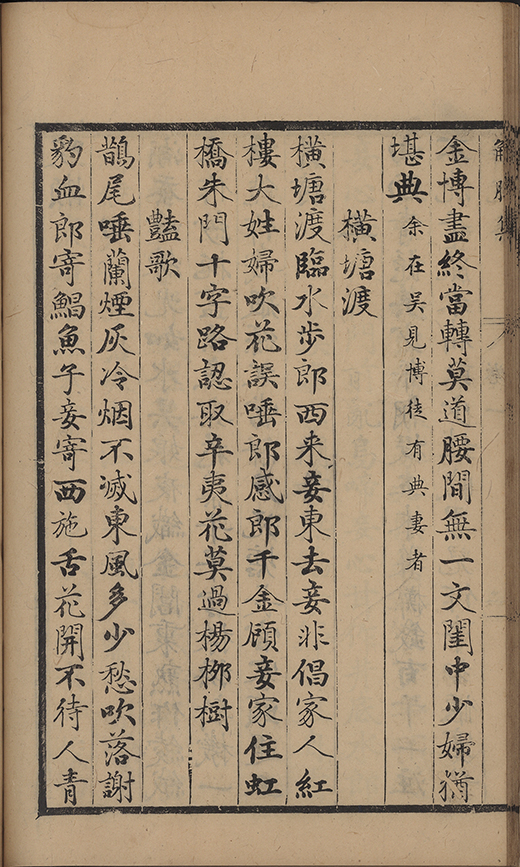 解脫集
金博盡終當轉莫道腰間無一文閨中少婦猶
堪典余在吴見博徒有典妻者
橫塘渡
橫塘渡臨水步郎西来妾東去妾非倡家人紅
樓大姓婦吹花誤唾郎感郎千金顧妾家住虹
橋朱門十字路認取辛夷花莫過楊栁樹
豔歌
鵲尾唾蘭煙灰冷烟不滅東風多少愁吹落謝
豹血郎寄鯧魚子妾寄西施舌花開不待人青